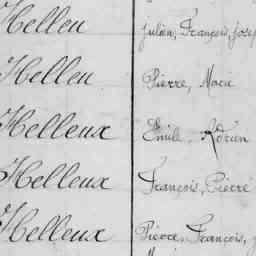 Helleu Julien, François, Josep
Helleu Pierre, Marie
Helleux Emile, Adrien
Helleux François, Pierre
Helleux Pierre, François, J
Marie